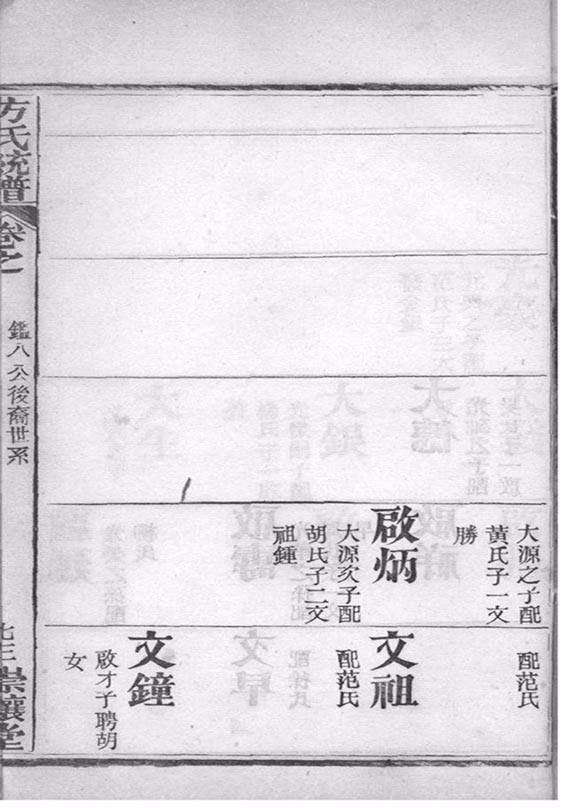 大源之子配
黃氏子一文
勝
啟炳
大源次子配
胡氏子二文
祖鍾
配范氏
文祖
配范氏
文鐘
啟才子聘胡
女
方氏統譜
卷之
鑑八公後裔世系
崇讓堂